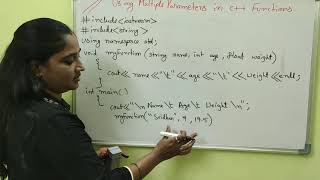 Using Multiple Parameters in C++ Functions
#include<iostream>
#include<string>
Using namespace std;
void myfunction (string name, int age, float weight)
{
cout<<name<<"\t"<<age<<"\t"<<weight<<endl;
int main()
{
cout<<"\n Name \t Age \t Weight \n";
myfunction("Sridhar", 9, 19.5)